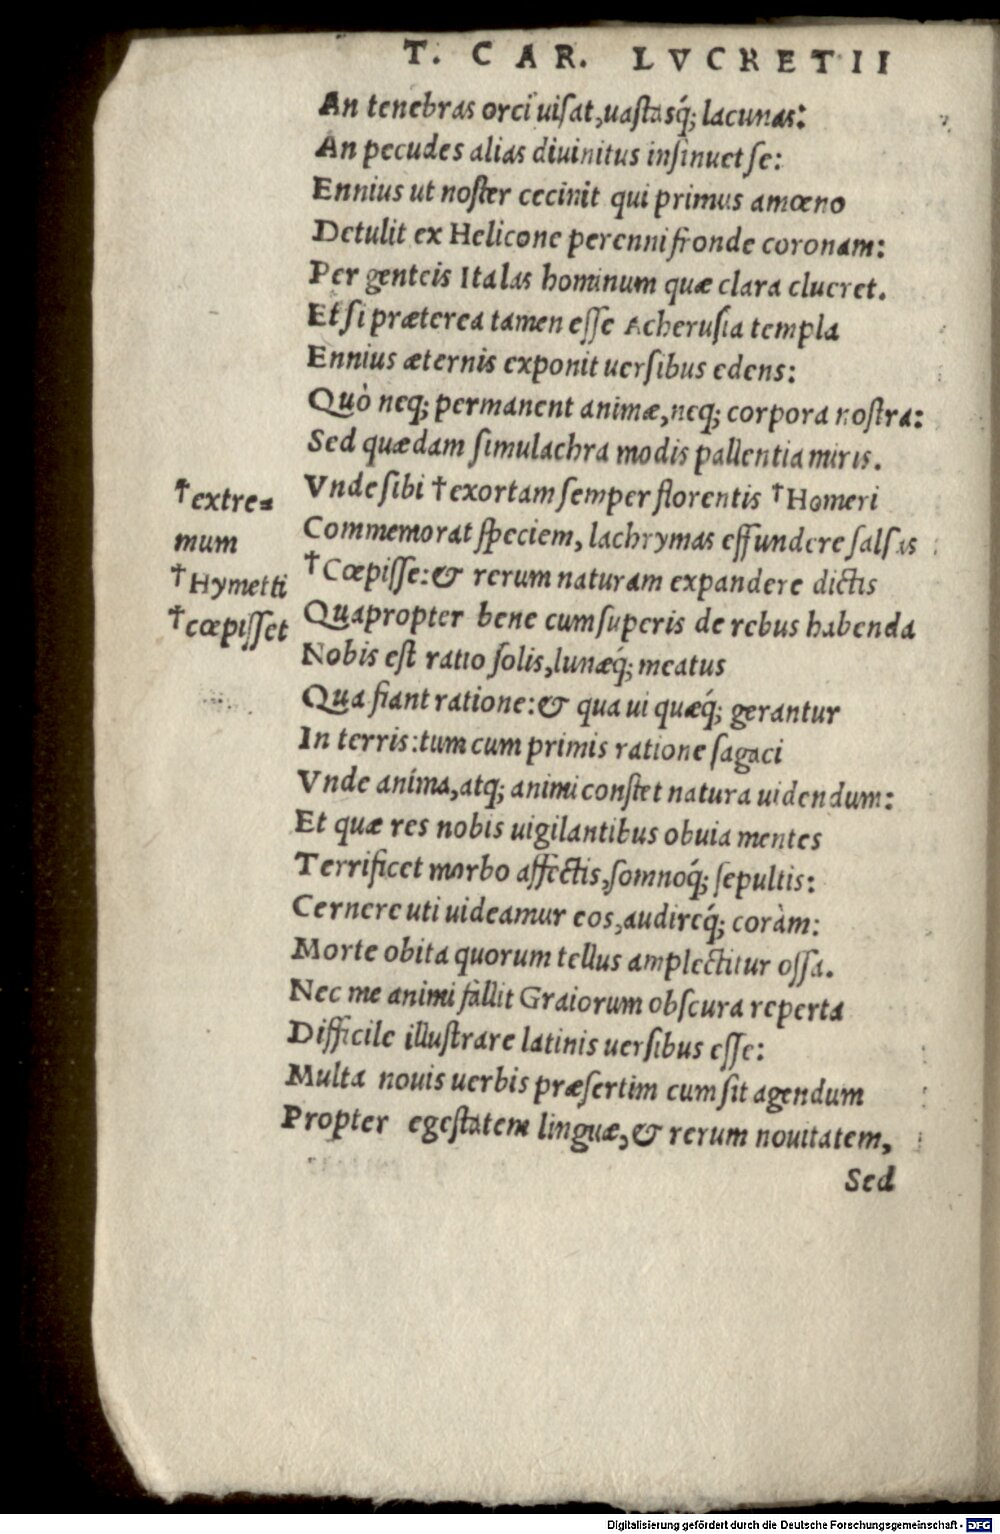 T. CAR. LVCRETII
An tenebras orci uisat, uastasq́; lacunas:
An pecudes alias diuinitus insinuet se:
Ennius ut noster cecinit qui primus amœno
Detulit ex Helicone perenni fronde coronam:
Per genteis Italas hominum quæ clara clueret.
Et si præterea tamen esse Acherusia templa
Ennius æternis exponit uersibus edens:
Quò neq; permanent animæ, neq; corpora nostra:
Sed quædam simulachra modis pallentia miris.
Vnde sibi †exortam semper florentis †Homeri
Commemorat speciem, lachrymas effundere salsas
†Cœpisse: & rerum naturam expandere dictis
Quapropter bene cum superis de rebus habenda
Nobis est ratio solis, lunæq́; meatus
Qua fiant ratione: & qua ui quæq́; gerantur
In terris: tum cum primis ratione sagaci
Vnde anima, atq; animi constet natura uidendum:
Et quæ res nobis uigilantibus obuia mentes
Terrificet morbo affectis, somnoq́; sepultis:
Cernere uti uideamur eos, audireq́; coràm:
Morte obita quorum tellus amplectitur ossa.
Nec me animi fallit Graiorum obscura reperta
Difficile illustrare latinis uersibus esse:
Multa nouis uerbis præsertim cum sit agendum
Propter egestatem linguæ, & rerum nouitatem,
Sed
†extre=
mum
†Hymetti
†cœpisset
Digitalisierung gefördert durch die Deutsche Forschungsgemeinschaft - DFG